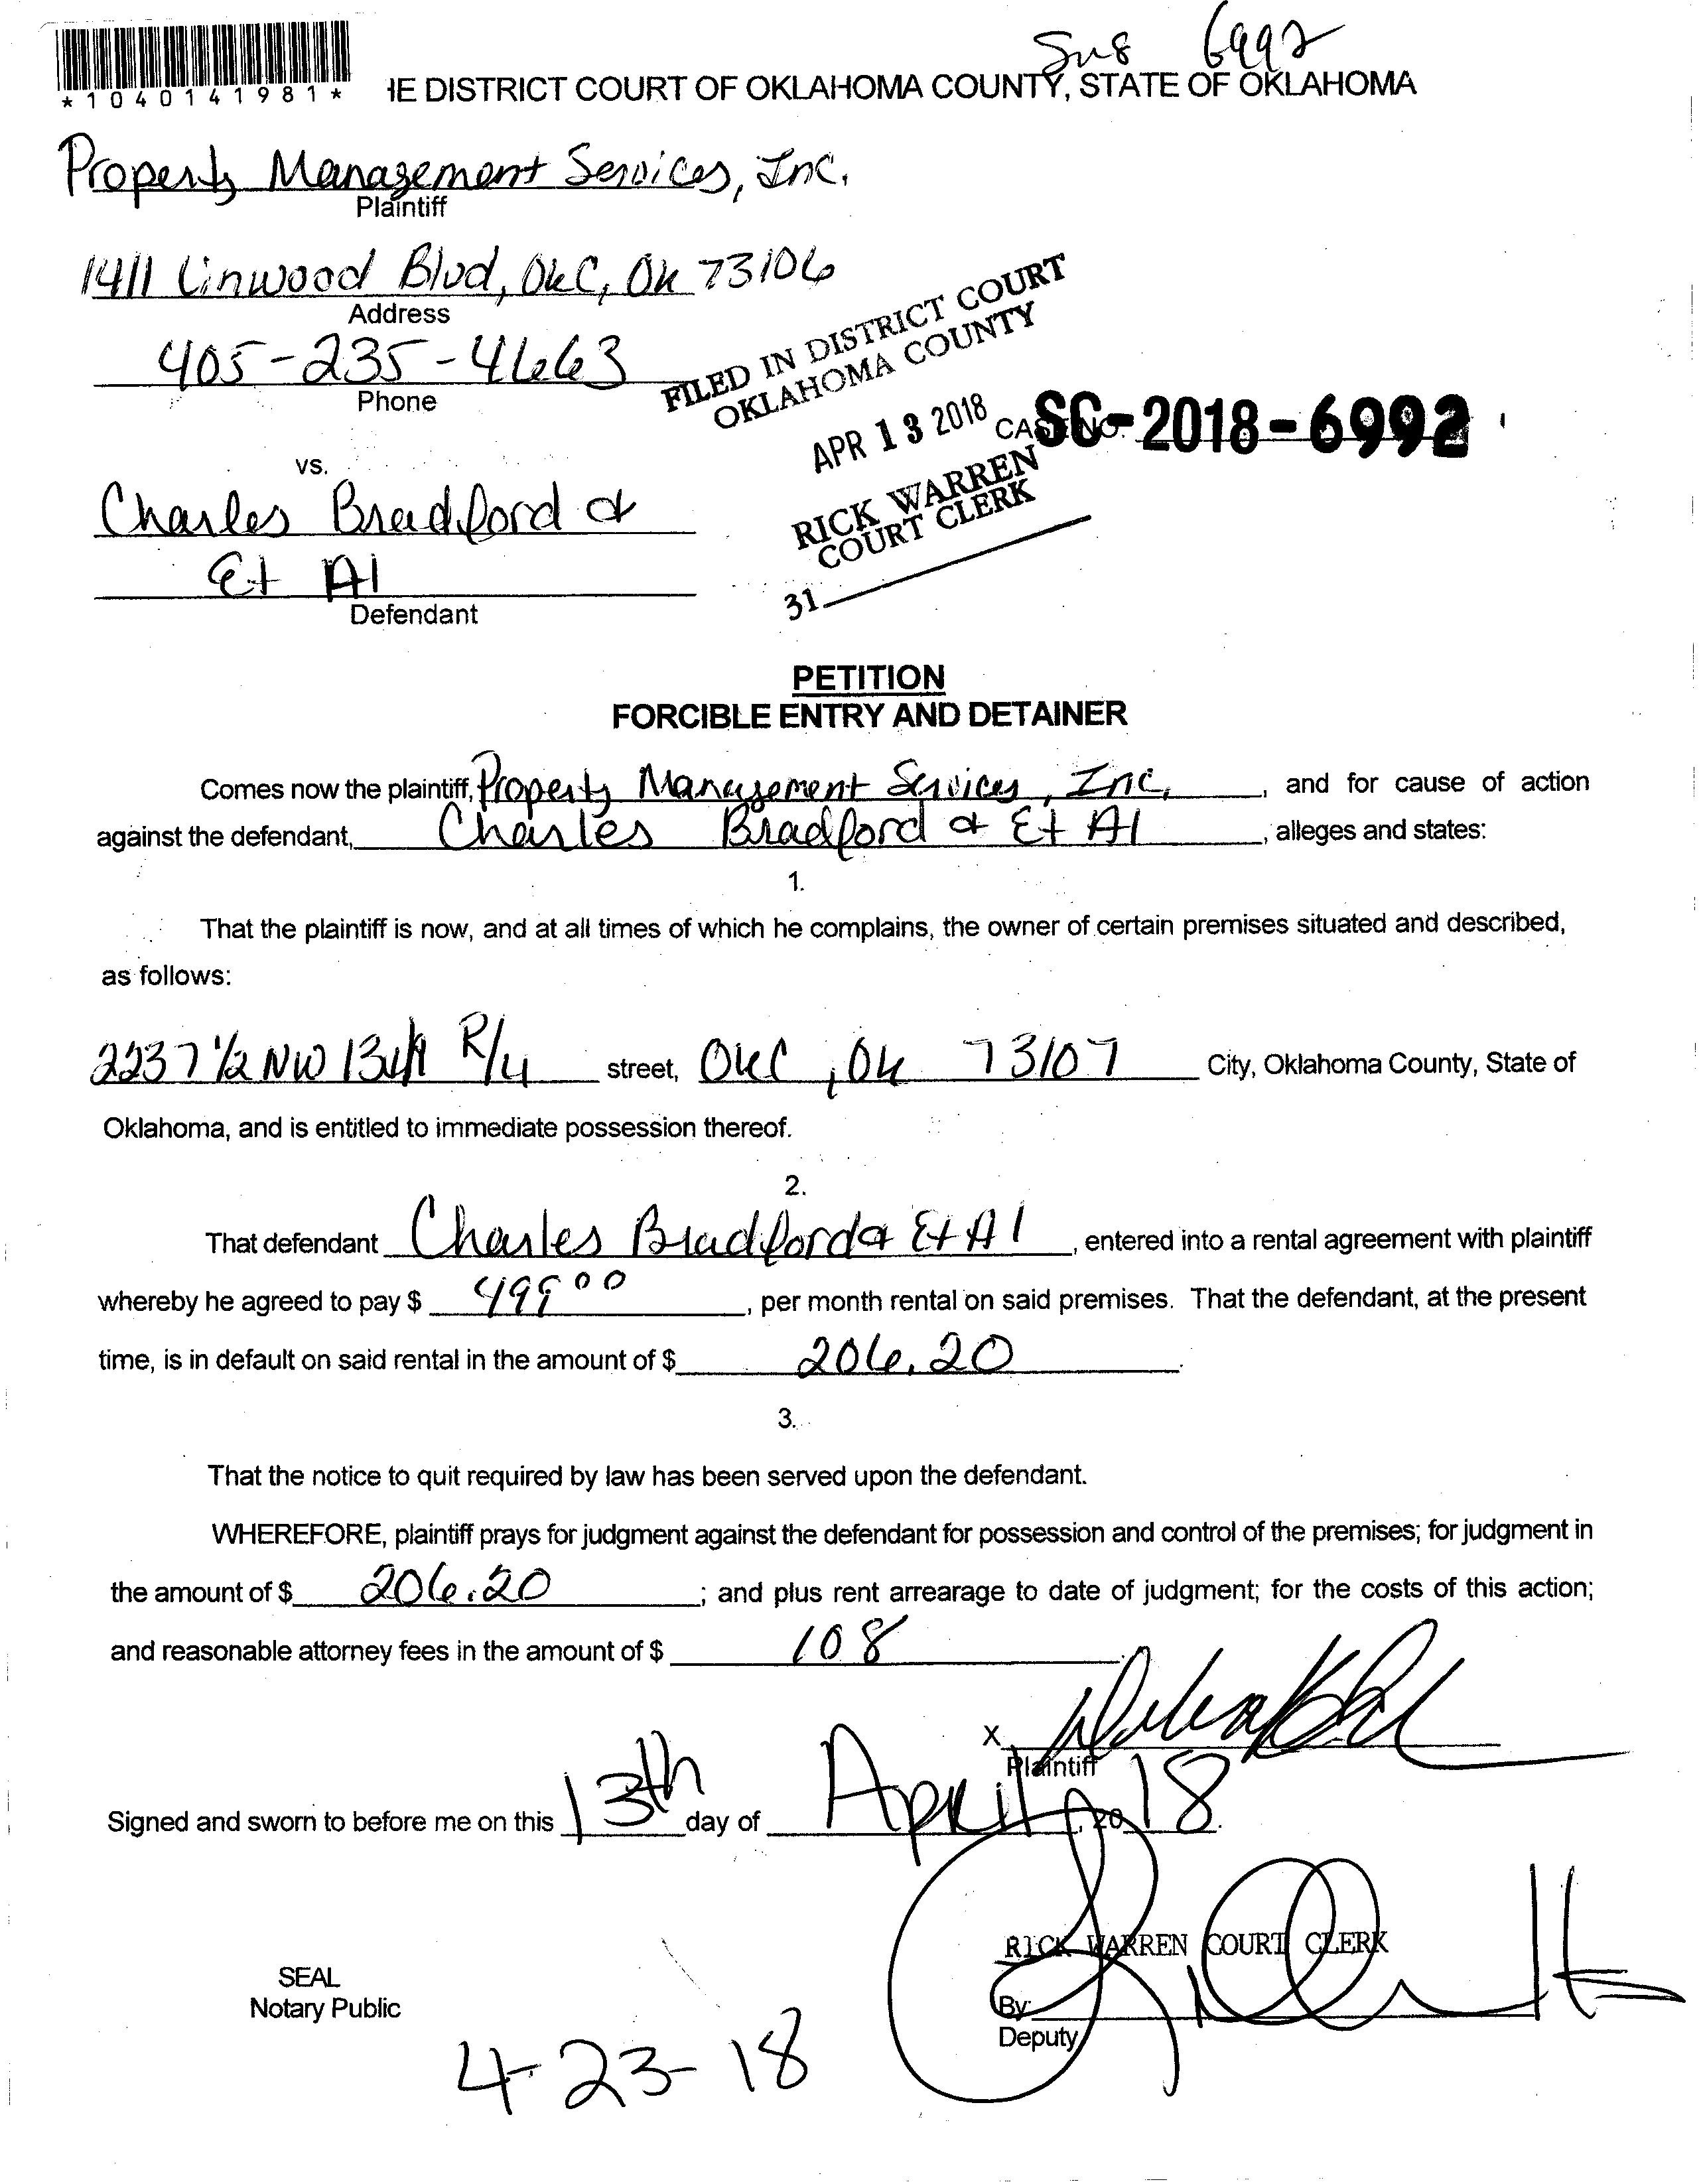 6992
*1040141981*
IE DISTRICT COURT OF OKLAHOMA COUNTY, STATE OF OKLAHOMA
Property Management Services, Inc.
Plaintiff
1411 Linwood Blvd, OKC, OK 73106
Address
405-235-4663
Phone
FILED IN DISTRICT COURT
OKLAHOMA COUNTY
APR 13 2018
CASE NO. SC-2018-6992
RICK WARREN
COURT CLERK
31
vs.
Charles Bradford &
Et Al
Defendant
PETITION
FORCIBLE ENTRY AND DETAINER
Comes now the plaintiff, Property Management Services, Inc., and for cause of action
against the defendant, Charles Bradford & Et Al, alleges and states:
1.
That the plaintiff is now, and at all times of which he complains, the owner of certain premises situated and described,
as follows:
2237 1/2 NW 13th R/4 street, OKC, OK 73107 City, Oklahoma County, State of
Oklahoma, and is entitled to immediate possession thereof.
2.
That defendant Charles Bradford & Et Al, entered into a rental agreement with plaintiff
whereby he agreed to pay $ 499 00, per month rental on said premises. That the defendant, at the present
time, is in default on said rental in the amount of $ 206.20.
3.
That the notice to quit required by law has been served upon the defendant.
WHEREFORE, plaintiff prays for judgment against the defendant for possession and control of the premises; for judgment in
the amount of $ 206.20; and plus rent arrearage to date of judgment; for the costs of this action;
and reasonable attorney fees in the amount of $ 108.
X
Plaintiff
Signed and sworn to before me on this 13th day of April, 2018.
RICK WARREN COURT CLERK
SEAL
Notary Public
By:
Deputy
4-23-18